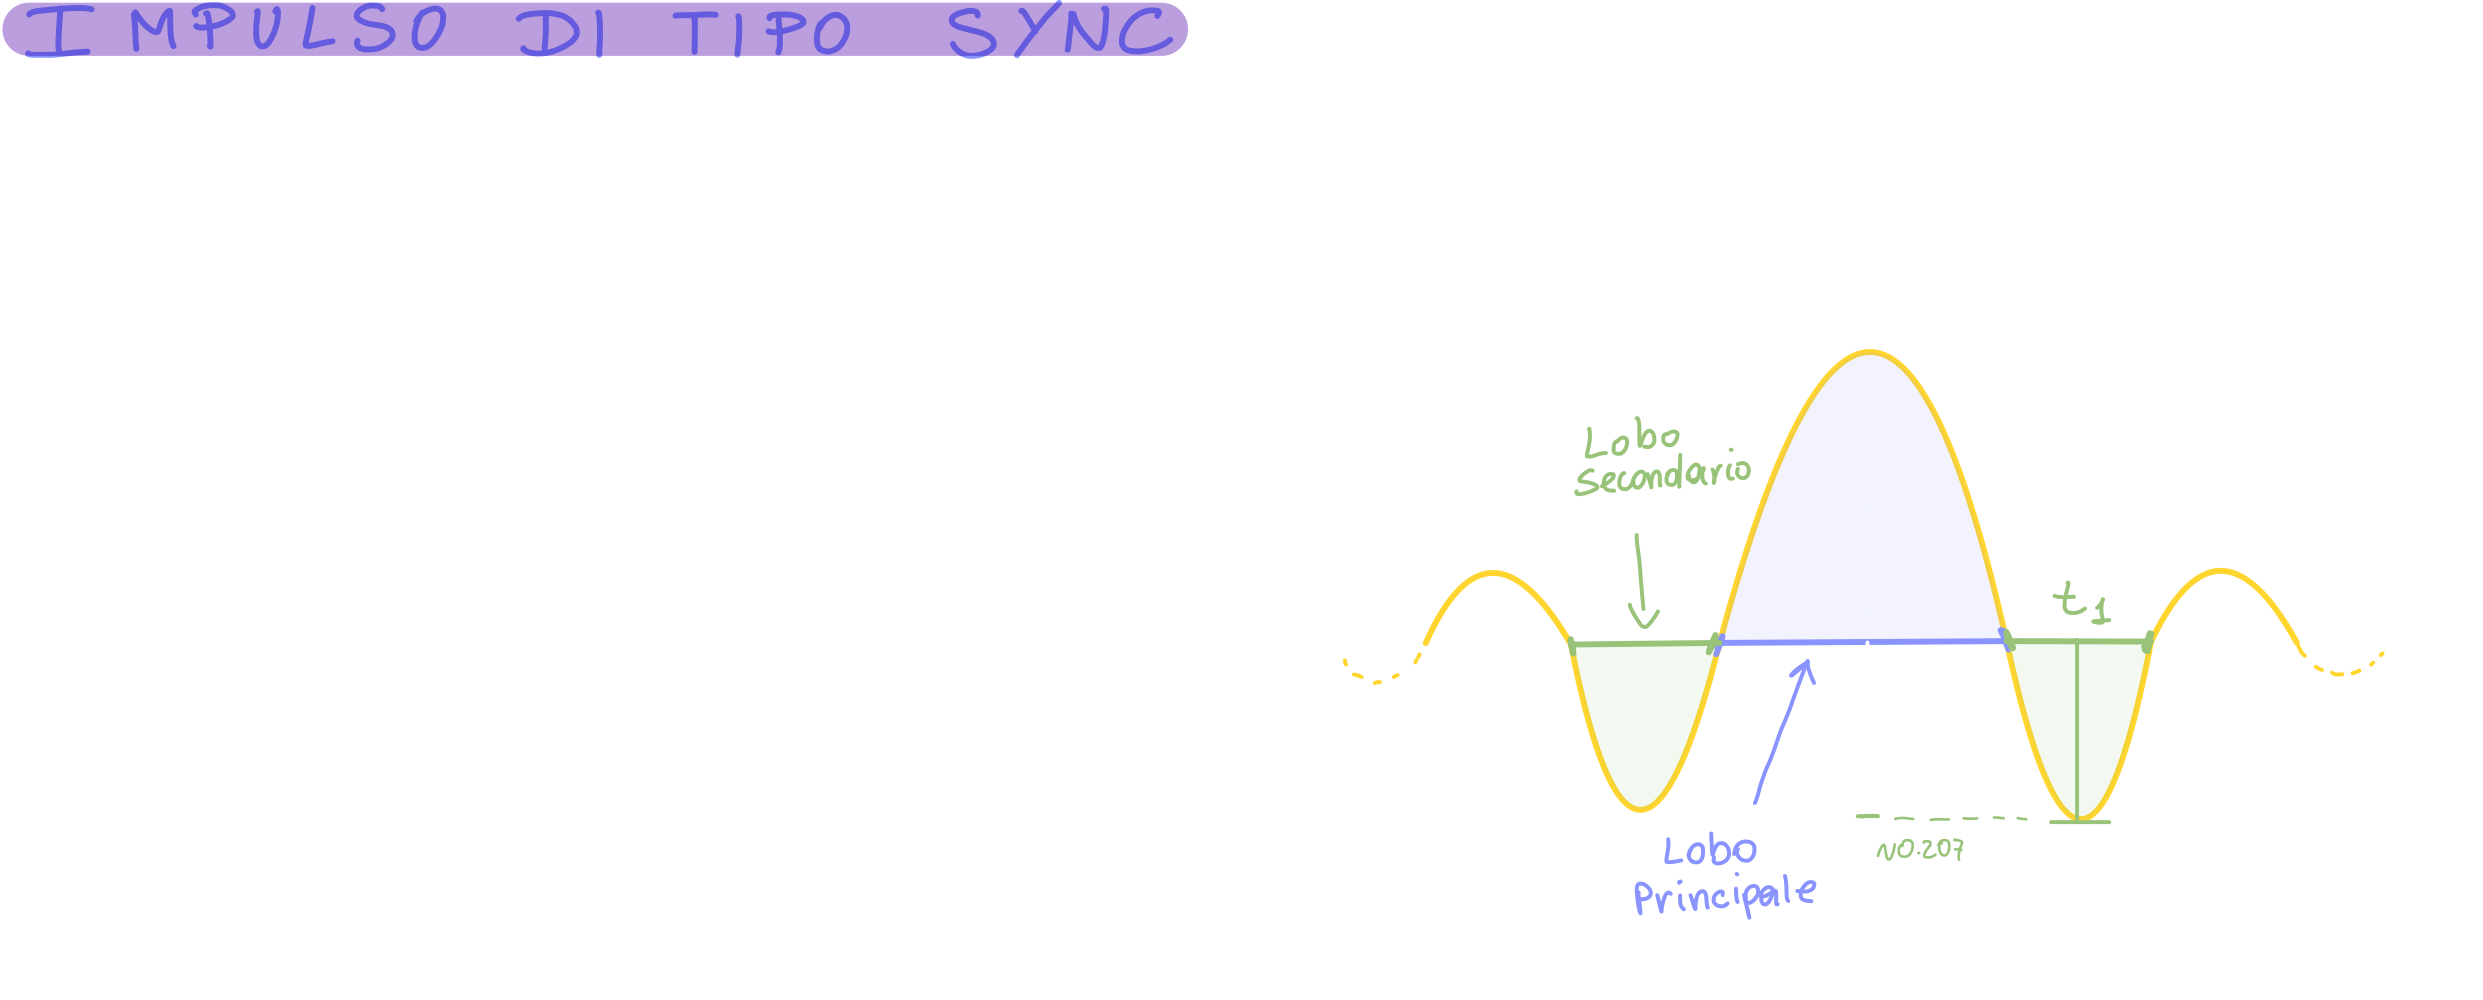 IMPULSO DI TIPO SYNC
Lobo
secondario
t1
~0.207
Lobo
Principale